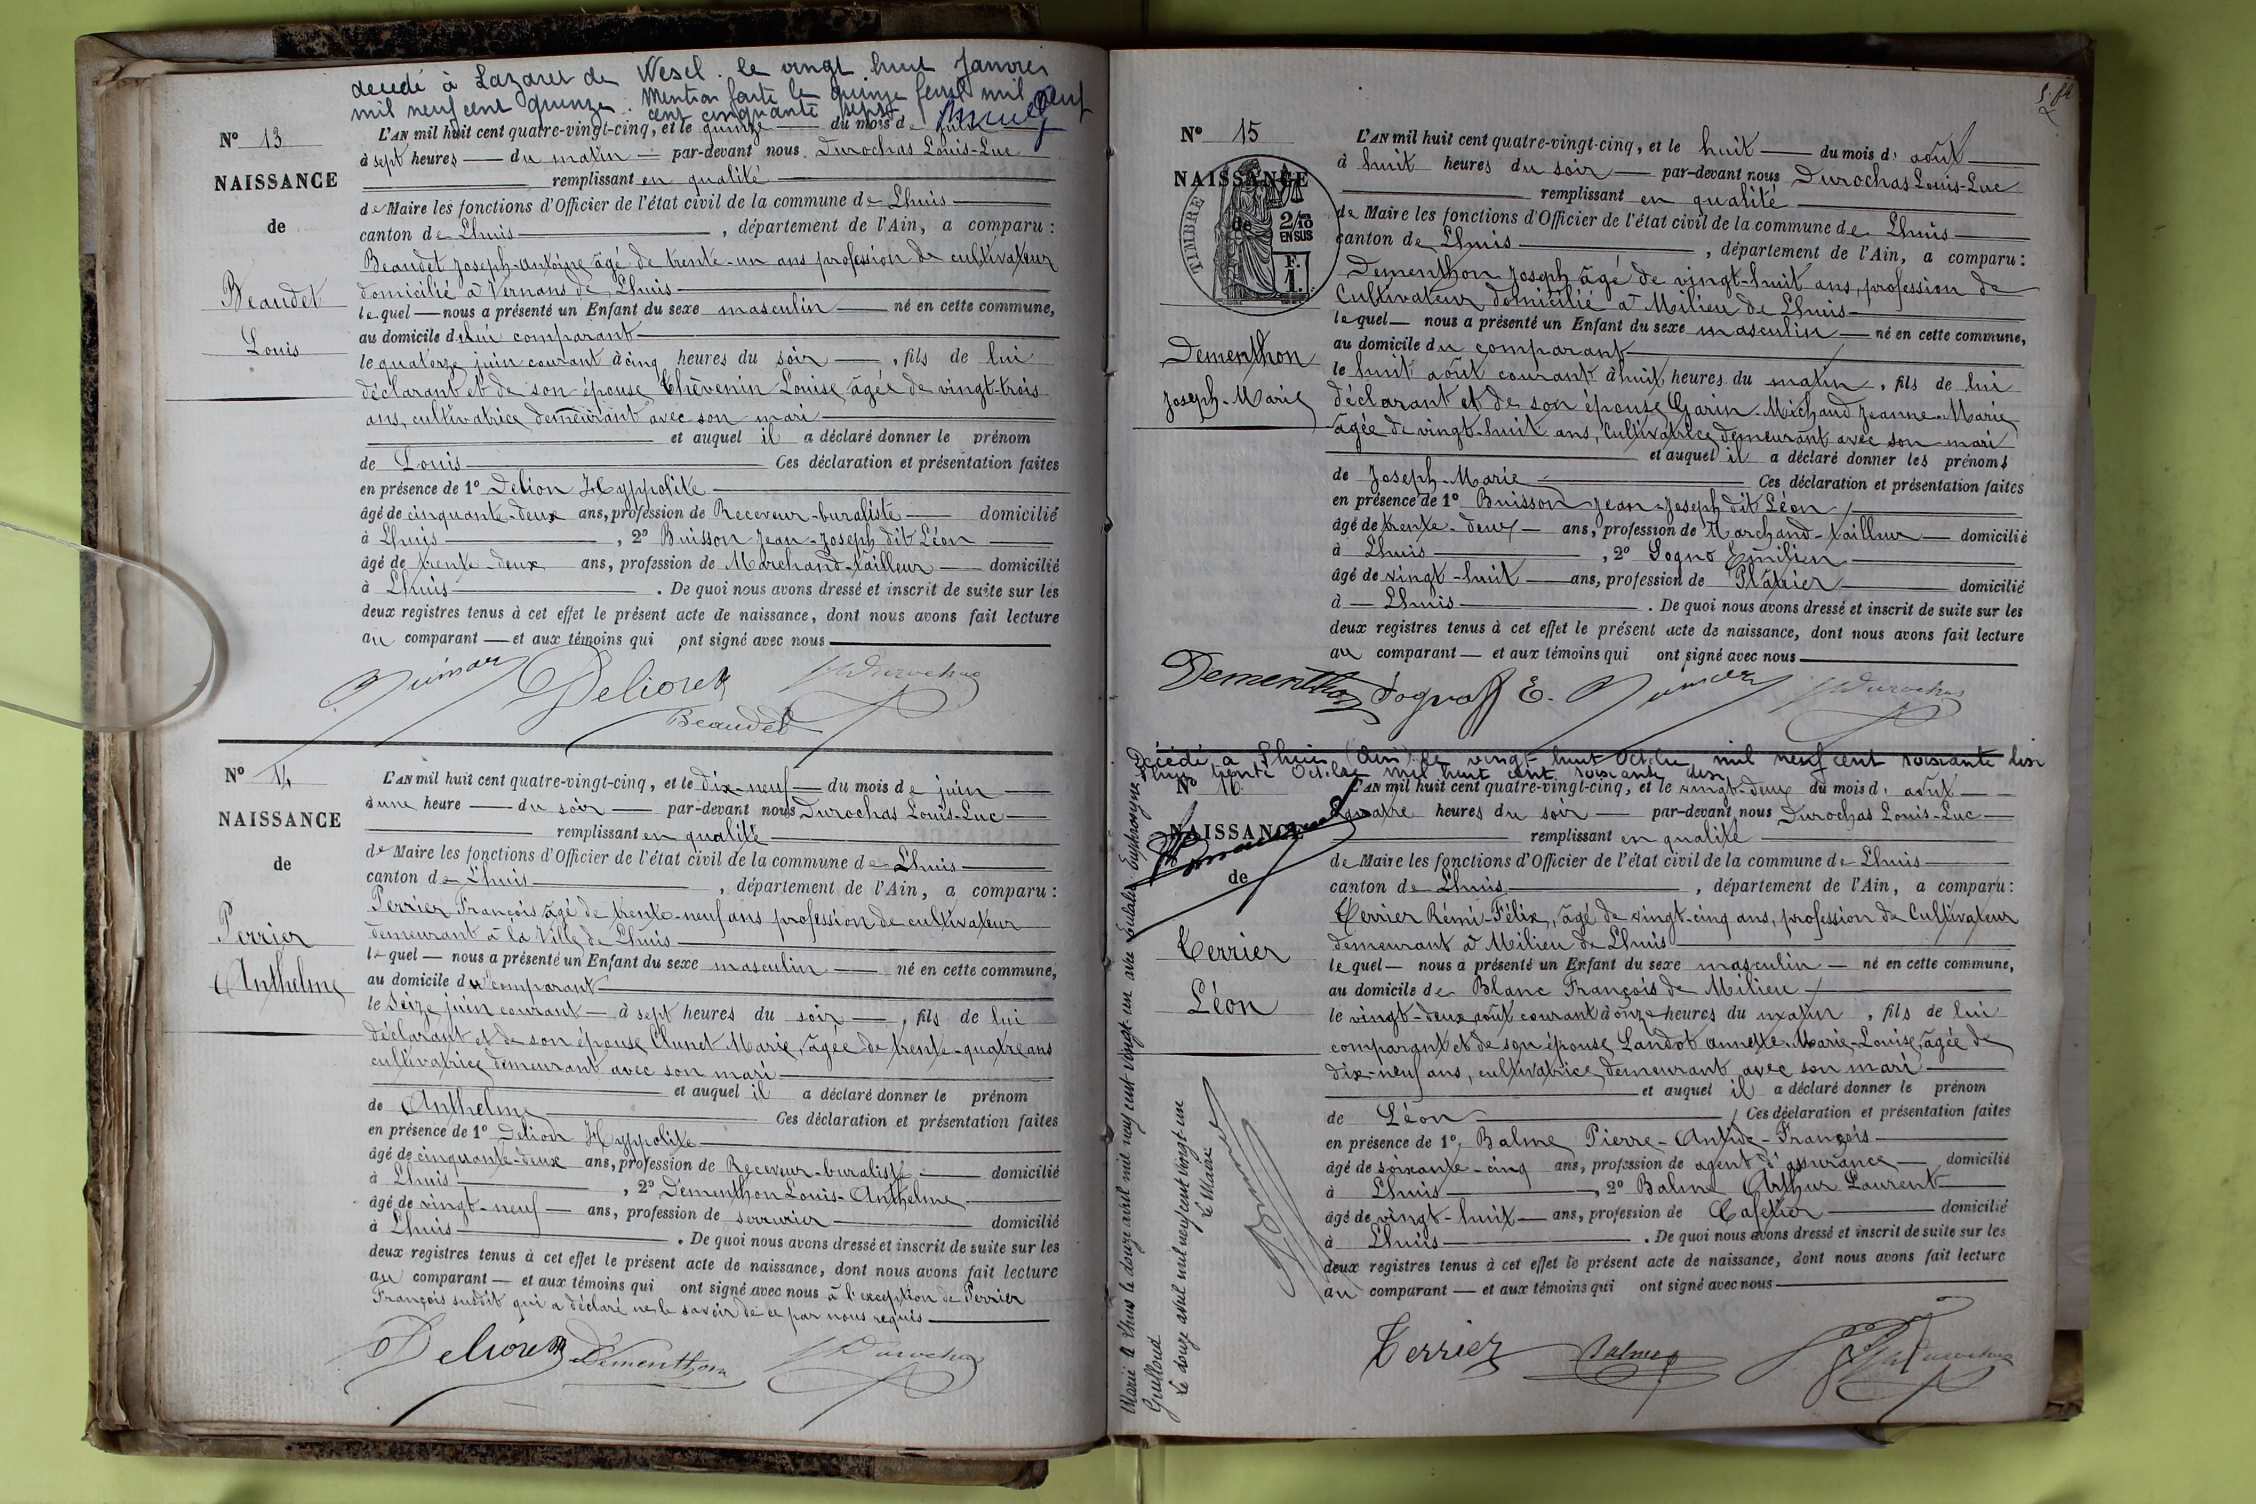 decedé à Lazaret de Wesel. le vingt huit Janvier
mil neuf cent quinze. Mention faite le quinze mil neuf
cent cinquante sept
N° 13
NAISSANCE
de
Beaudet
Louis
L'AN mil huit cent quatre-vingt-cinq, et le quinze du mois de juin
à sept heures du matin par-devant nous Durochas Louis-Luc
remplissant en qualité
de Maire les fonctions d'Officier de l'état civil de la commune de Lhuis
canton de Lhuis, département de l'Ain, a comparu :
Beaudet Joseph-Antoine âgé de trente-un ans profession de cultivateur
domicilié à Vernans de Lhuis
lequel nous a présenté un Enfant du sexe masculin né en cette commune,
au domicile du comparant
le quatorze juin courant à cinq heures du soir, fils de lui
déclarant et de son épouse Thèvenin Louise, âgée de vingt-trois
ans, cultivatrice demeurant avec son mari
et auquel il a déclaré donner le prénom
de Louis Ces déclaration et présentation faites
en présence de 1° Delion Hyppolite
âgé de cinquante-deux ans, profession de Receveur-buraliste domicilié
à Lhuis, 2° Buisson Jean-Joseph dit Léon
âgé de trente-deux ans, profession de Marchand-tailleur domicilié
à Lhuis. De quoi nous avons dressé et inscrit de suite sur les
deux registres tenus à cet effet le présent acte de naissance, dont nous avons fait lecture
au comparant et aux témoins qui ont signé avec nous
Delion
Durochas
Beaudet
N° 14
NAISSANCE
de
Perrier
Anthelme
L'AN mil huit cent quatre-vingt-cinq, et le dix-neuf du mois de juin
à une heure du soir par-devant nous Durochas Louis-Luc
remplissant en qualité
de Maire les fonctions d'Officier de l'état civil de la commune de Lhuis
canton de Lhuis, département de l'Ain, a comparu :
Perrier François âgé de trente-neuf ans profession de cultivateur
demeurant à la Ville de Lhuis
lequel nous a présenté un Enfant du sexe masculin né en cette commune,
au domicile du comparant
le seize juin courant à sept heures du soir, fils de lui
déclarant et de son épouse Clunet Marie, âgée de trente-quatre ans
cultivatrice demeurant avec son mari
et auquel il a déclaré donner le prénom
de Anthelme Ces déclaration et présentation faites
en présence de 1° Delion Hyppolite
âgé de cinquante-deux ans, profession de Receveur-buraliste domicilié
à Lhuis, 2° Dementhon Louis-Anthelme
âgé de vingt-neuf ans, profession de serrurier domicilié
à Lhuis. De quoi nous avons dressé et inscrit de suite sur les
deux registres tenus à cet effet le présent acte de naissance, dont nous avons fait lecture
au comparant et aux témoins qui ont signé avec nous à l'exception de Perrier
François susdit qui a déclaré ne le savoir de ce par nous requis
Delion Dementhon Durochas
N° 15
NAISSANCE
de
TIMBRE
2/10
EN SUS
F.
1.
Dementhon
Joseph-Marie
L'AN mil huit cent quatre-vingt-cinq, et le huit du mois d'août
à huit heures du soir par-devant nous Durochas Louis-Luc
remplissant en qualité
de Maire les fonctions d'Officier de l'état civil de la commune de Lhuis
canton de Lhuis, département de l'Ain, a comparu :
Dementhon Joseph âgé de vingt-huit ans, profession de
Cultivateur domicilié à Milieu de Lhuis
lequel nous a présenté un Enfant du sexe masculin né en cette commune,
au domicile du comparant
le huit août courant à huit heures du matin, fils de lui
déclarant et de son épouse Garin-Michaud Jeanne-Marie
âgée de vingt-huit ans, Cultivatrice demeurant avec son mari
et auquel il a déclaré donner les prénoms
de Joseph-Marie Ces déclaration et présentation faites
en présence de 1° Buisson Jean-Joseph dit Léon
âgé de trente-deux ans, profession de Marchand-tailleur domicilié
à Lhuis, 2° Sogno Emilien
âgé de vingt-huit ans, profession de Plâtrier domicilié
à Lhuis. De quoi nous avons dressé et inscrit de suite sur les
deux registres tenus à cet effet le présent acte de naissance, dont nous avons fait lecture
au comparant et aux témoins qui ont signé avec nous
Dementhon Sogno E. Durochas
Décédé à Lhuis (Ain) le vingt-huit Octobre mil neuf cent soixante dix
Lhuis trente Octobre mil huit cent soixante dix
N° 16
NAISSANCE
de
Terrier
Léon
L'AN mil huit cent quatre-vingt-cinq, et le vingt-deux du mois d'août
quatre heures du soir par-devant nous Durochas Louis-Luc
remplissant en qualité
de Maire les fonctions d'Officier de l'état civil de la commune de Lhuis
canton de Lhuis, département de l'Ain, a comparu :
Terrier Rémi-Félix, âgé de vingt-cinq ans, profession de Cultivateur
demeurant à Milieu de Lhuis
lequel nous a présenté un Enfant du sexe masculin né en cette commune,
au domicile de Blanc François de Milieu
le vingt-deux août courant à onze heures du matin, fils de lui
comparant et de son épouse Landot Annette-Marie-Louise, âgée de
dix-neuf ans, cultivatrice, demeurant avec son mari
et auquel il a déclaré donner le prénom
de Léon Ces déclaration et présentation faites
en présence de 1° Balme Pierre-Antide-François
âgé de soixante-cinq ans, profession de agent d'assurance domicilié
à Lhuis, 2° Balme Arthur Laurent
âgé de vingt-huit ans, profession de Cafetier domicilié
à Lhuis. De quoi nous avons dressé et inscrit de suite sur les
deux registres tenus à cet effet le présent acte de naissance, dont nous avons fait lecture
au comparant et aux témoins qui ont signé avec nous
Terrier Balme Durochas
Marié à Lhuis le douze avril mil neuf cent vingt-un avec Eulalie Euphrosyne
Guilloud
Le douze avril mil neuf cent vingt-un
Le Maire